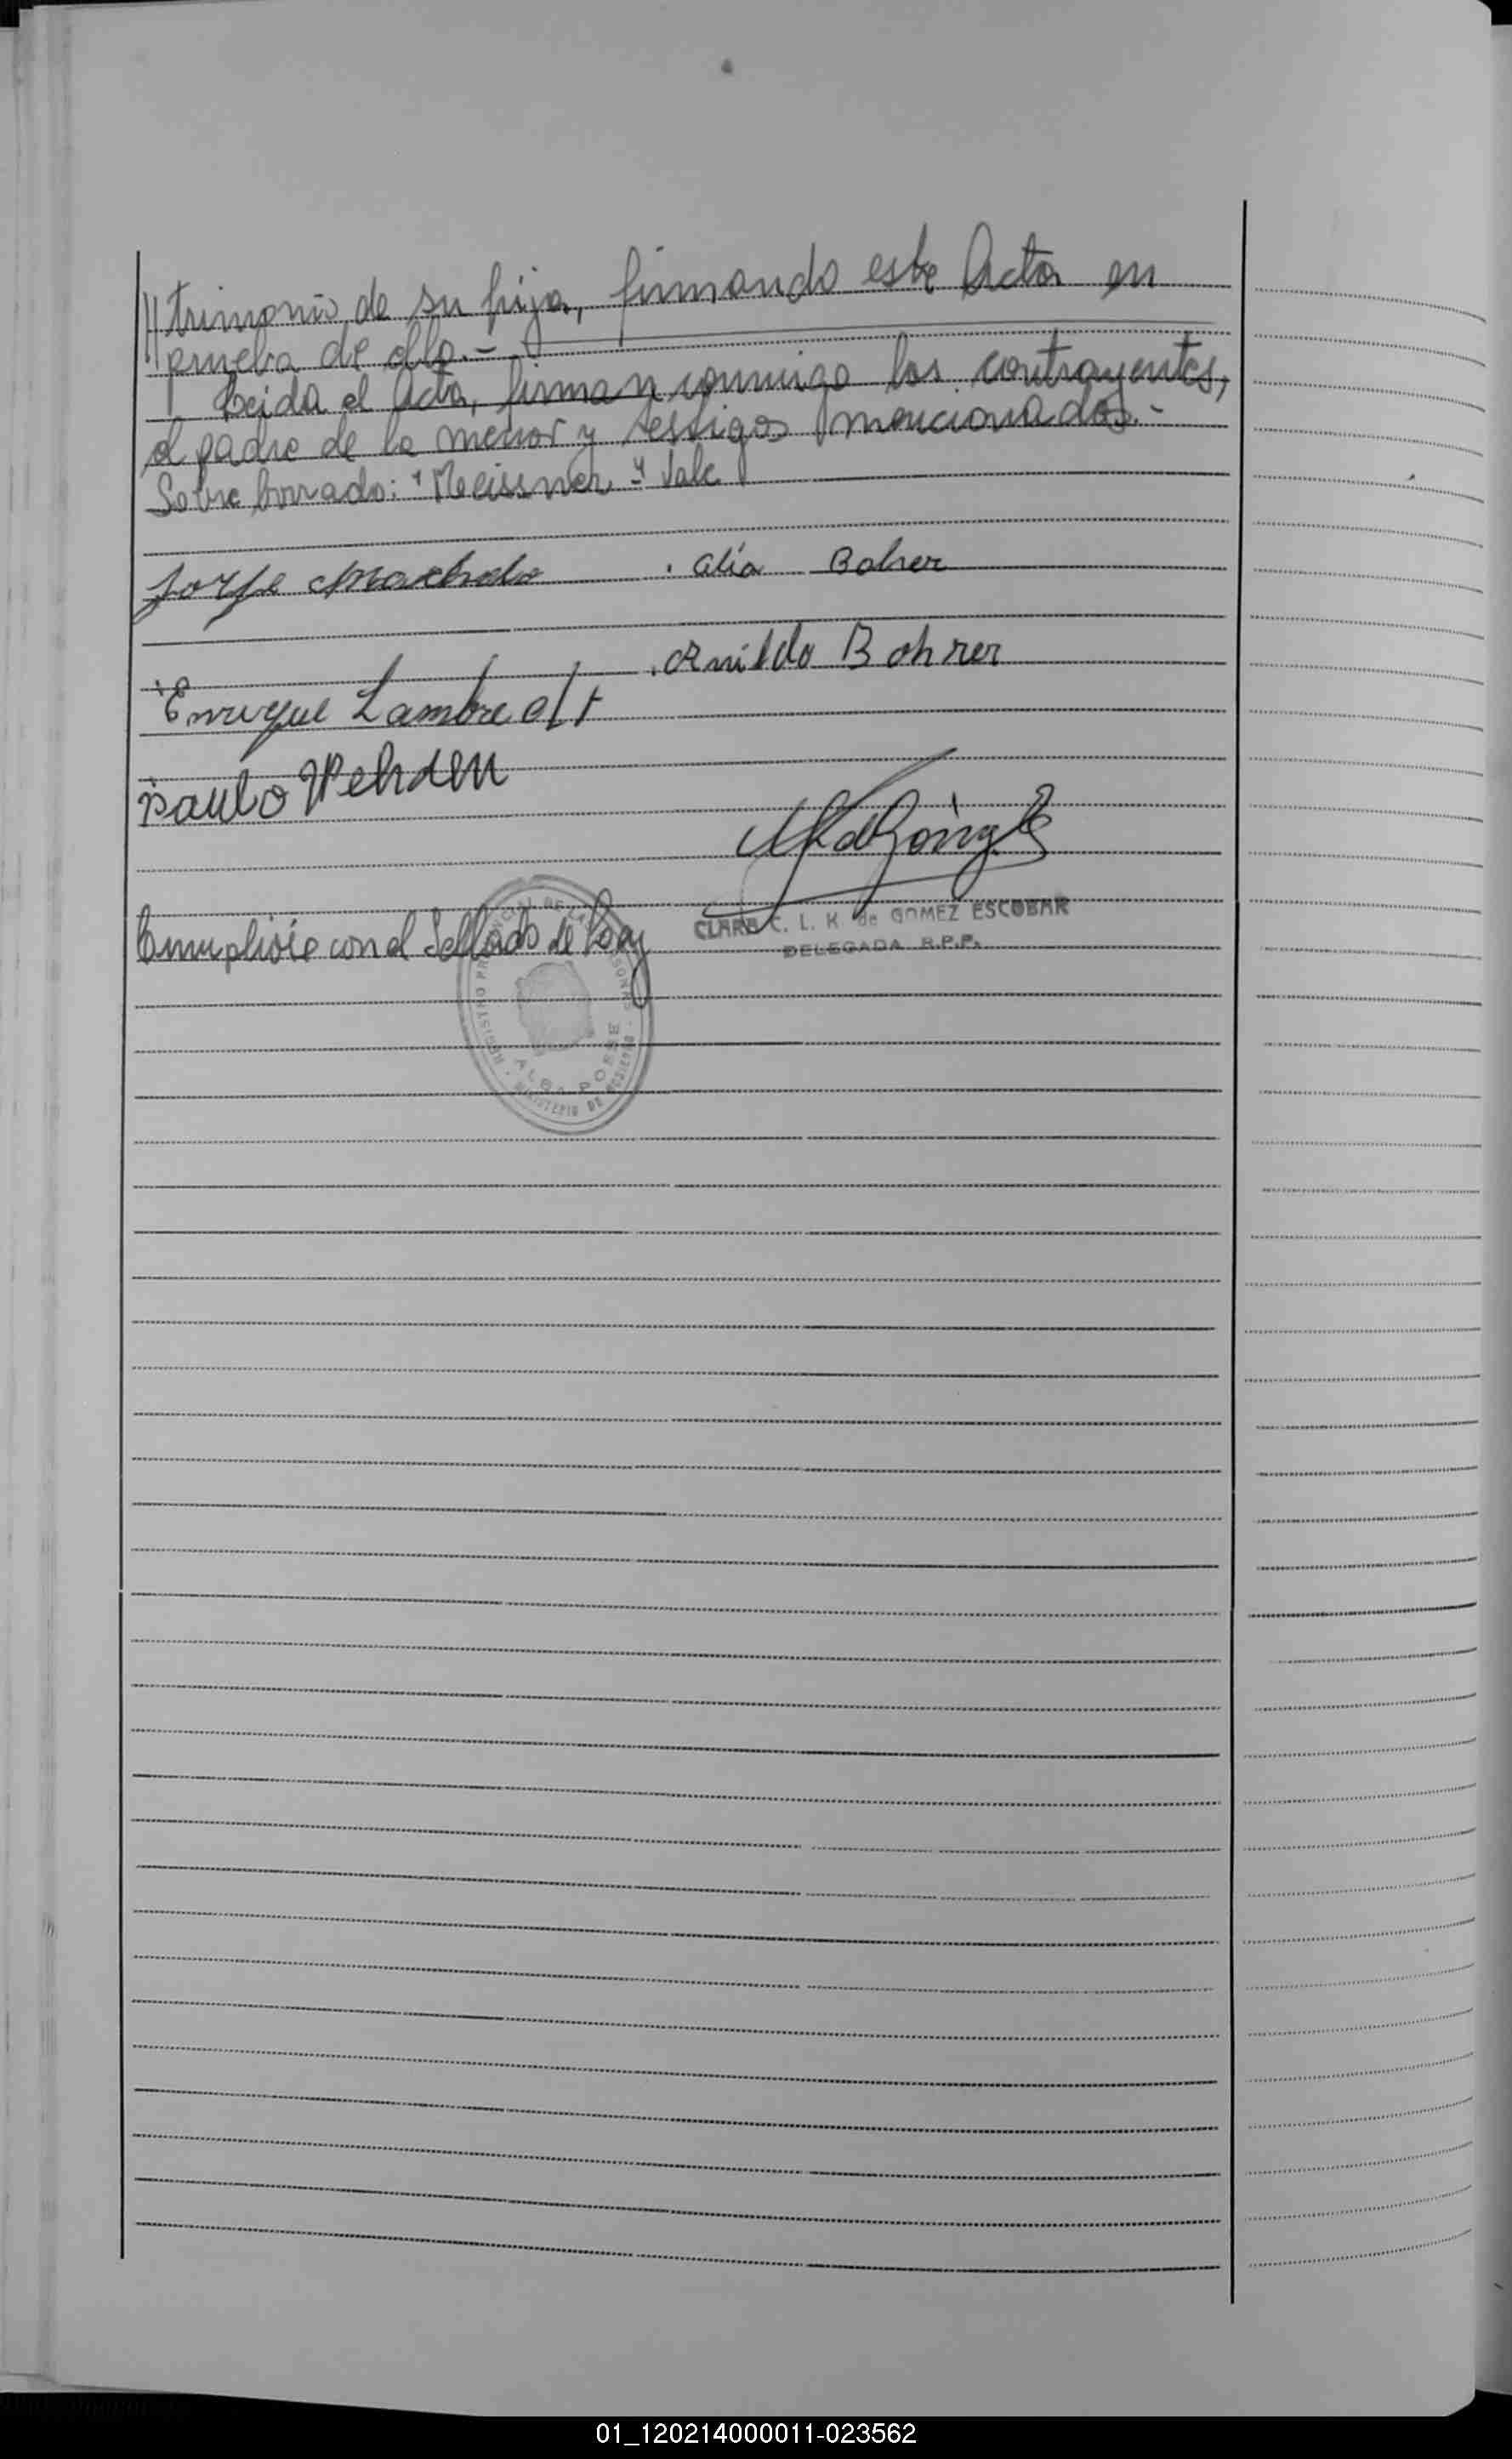 //trimonio de su hija, firmando este Acta en
//prueba de ello.-
Leida el Acta, firman conmigo los contrayentes,
el padre de la menor y testigos mencionados.-
Sobre borrado: "Meissner" Vale
Jorge Machado
Alia Bohrer
Arnildo Bohrer
Enrique Lambrecht
Paulo Wehden
CLARA C. L. K. de GOMEZ ESCOBAR
DELEGADA R.P.P.
Cumpliose con el Sellado de Ley
REGISTRO PROVINCIAL DE LAS PERSONAS
ALBA POSSE
MINISTERIO DE GOBIERNO
01_120214000011-023562